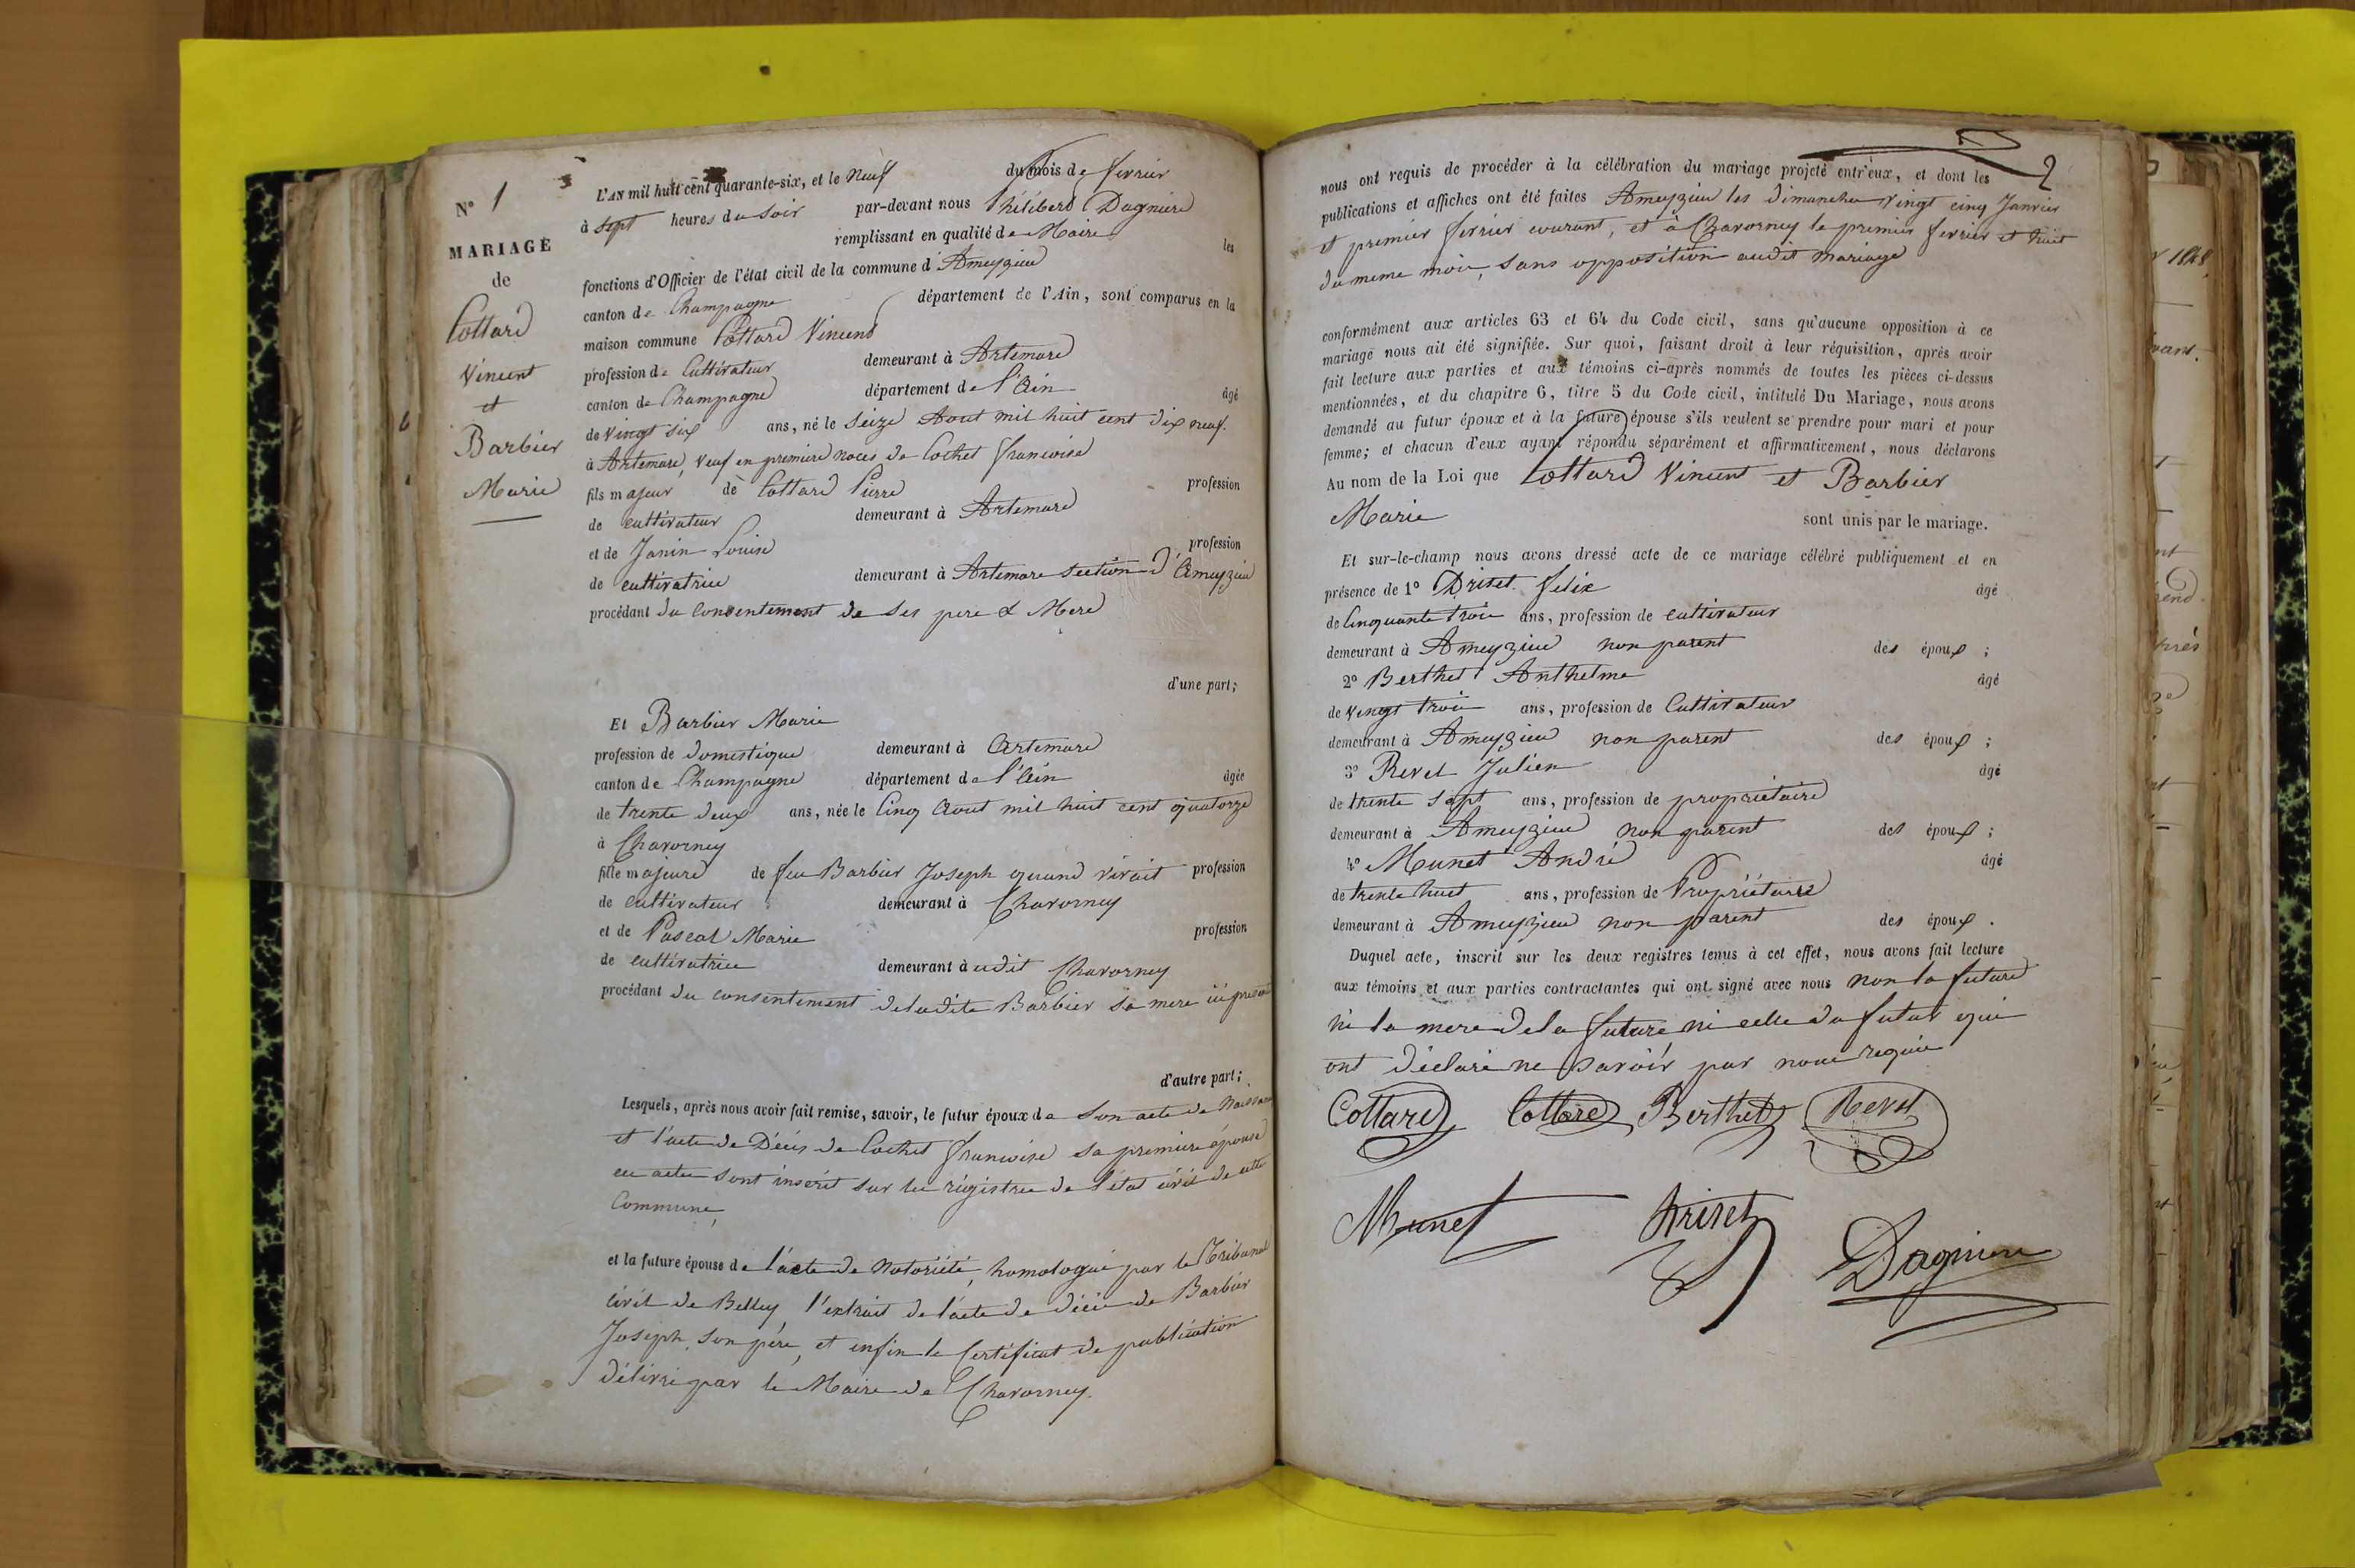 N° 1
MARIAGE
de
Cottard
Vincent
et
Barbier
Marie
L'AN mil huit cent quarante-six, et le neuf du mois de fevrier
à sept heures du soir par-devant nous Philiberd Dagniere
remplissant en qualité de Maire les
fonctions d'Officier de l'état civil de la commune d'Ameyzieu
canton de Champagne département de l'Ain, sont comparus en la
maison commune Cottard Vincend
profession de Cultivateur demeurant à Artemard
canton de Champagne département de l'Ain âgé
de vingt six ans, né le seize Aout mil huit cent dix neuf.
à Artemard, veuf en premiere noces de Cochet francoise
fils majeur de Cottard Pierre profession
de cultivateur demeurant à Artemard
et de Janin Louise profession
de cultivatrice demeurant à Artemare section d'Ameyzieu
procédant du consentement de ses pere & Mere
d'une part;
Et Barbier Marie
profession de domestique demeurant à Artemard
canton de Champagne département de l'Ain âgée
de trente deux ans, née le Cinq Aout mil huit cent quatorze
à Chavorney
fille majeure de feu Barbier Joseph quand vivait profession
de cultivateur demeurant à Chavorney
et de Pascal Marie profession
de cultivatrice demeurant à udit Chavorney
procédant du consentement deladite Barbier sa mere ici present
d'autre part;
Lesquels, après nous avoir fait remise, savoir, le futur époux de son acte de Naissance
et l'acte de Décès de Cochet francoise sa premiere épouse
ces actes sont inscrit sur les régistres de l'état civil de cette
Commune,
et la future épouse de l'acte de Notoriété, homologué par le Tribunal
civil de Belley, l'extrait de l'acte de décès de Barbier
Joseph, son père, et enfin le Certificat de publication
délivré par le Maire de Chavorney.
2
nous ont requis de procéder à la célébration du mariage projeté entr'eux, et dont les
publications et affiches ont été faites Ameyzieu les dimanches vingt cinq Janvier
et premier fevrier courant, et à Chavorney le premier fevrier et huit
du meme mois, sans opposition audit mariage
conformément aux articles 63 et 64 du Code civil, sans qu'aucune opposition à ce
mariage nous ait été signifiée. Sur quoi, faisant droit à leur réquisition, après avoir
fait lecture aux parties et aux témoins ci-après nommés de toutes les pièces ci-dessus
mentionnées, et du chapitre 6, titre 5 du Code civil, intitulé Du Mariage, nous avons
demandé au futur époux et à la future épouse s'ils veulent se prendre pour mari et pour
femme; et chacun d'eux ayant répondu séparément et affirmativement, nous déclarons
Au nom de la Loi que Cottard Vincent et Barbier
Marie sont unis par le mariage.
Et sur-le-champ nous avons dressé acte de ce mariage célébré publiquement et en
présence de 1° Driset felix âgé
de Cinquante trois ans, profession de cultivateur
demeurant à Ameyzieu non parent des époux ;
2° Berthet Anthelme âgé
de vingt trois ans, profession de Cultivateur
demeurant à Ameyzieu non parent des époux ;
3° Revet Julien âgé
de trente sept ans, profession de propriétaire
demeurant à Ameyzieu non parent des époux ;
4° Munet André âgé
de trente huit ans, profession de Propriétaire
demeurant à Ameyzieu non parent des époux .
Duquel acte, inscrit sur les deux registres tenus à cet effet, nous avons fait lecture
aux témoins et aux parties contractantes qui ont signé avec nous non la future
ni la mere de la future ni celle du futur qui
ont déclaré ne savoir par nous requis
Cottard Cottard Berthet Revet
Munet Driset
Dagniere